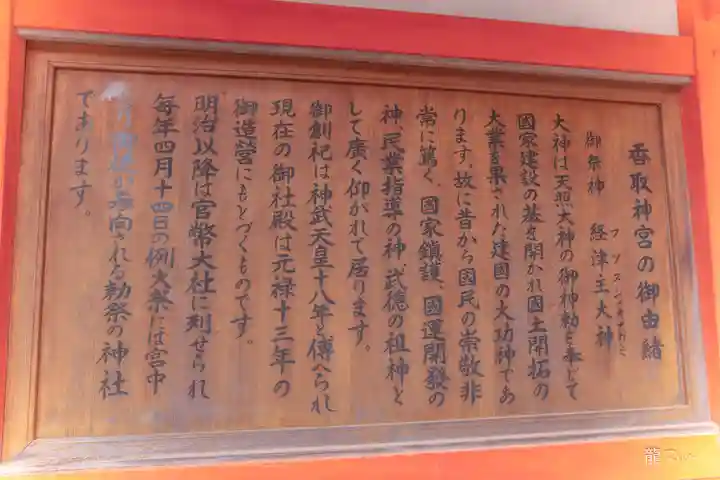 香取神宮の御由緒
御祭神 経津主大神
フツヌシノオオカミ
大神は天照大神の御神勅を奉じて
國家建設の基を開かれ國土開拓の
大業を果された建國の大功神であ
ります。故に昔から國民の崇敬非
常に篤く、國家鎮護、國運開發の
神、民業指導の神、武徳の祖神と
して廣く仰がれて居ります。
御創祀は神武天皇十八年と傳へられ
現在の御社殿は元禄十三年の
御造營にもとづくものです。
明治以降は官幣大社に列せられ
毎年四月十四日の例大祭には宮中
より御使が参向される勅祭の神社
であります。
龍